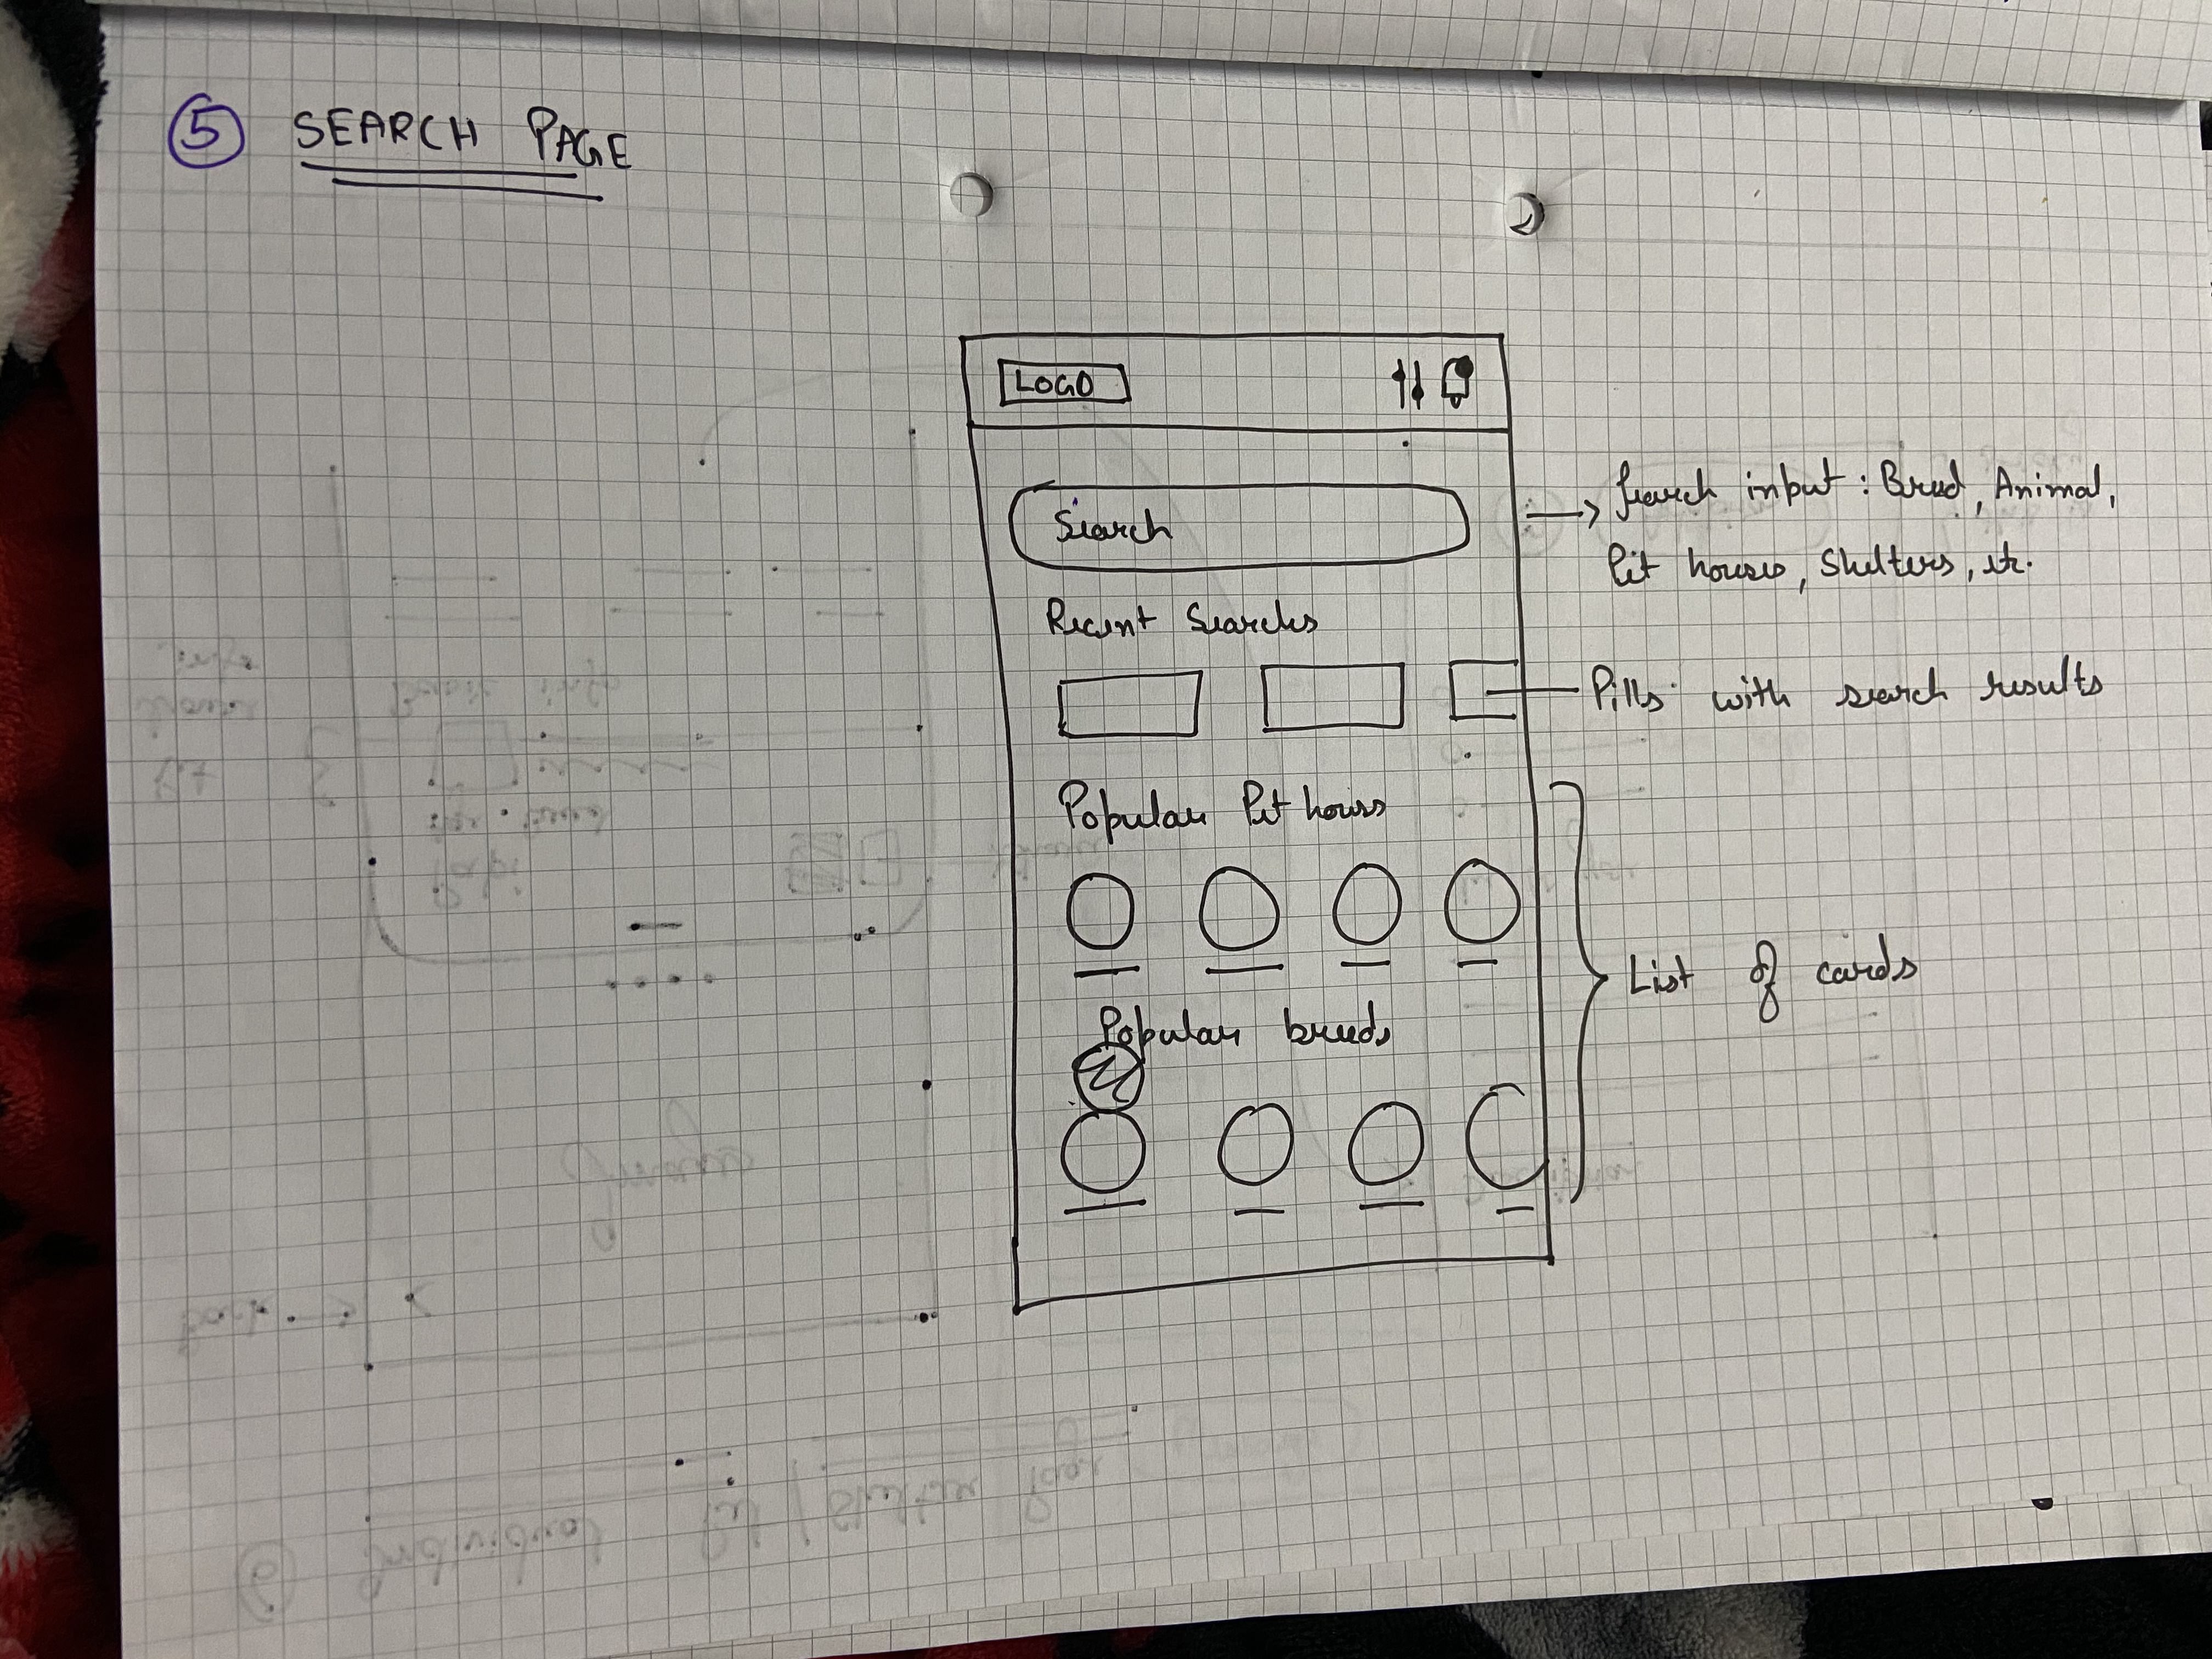 5 SEARCH PAGE
LOGO
Search
Search input: Breed, Animal,
Pet houses, Shelters, etc.
Recent Searches
Pills with search results
Popular Pet houses
List of cards
Popular breeds